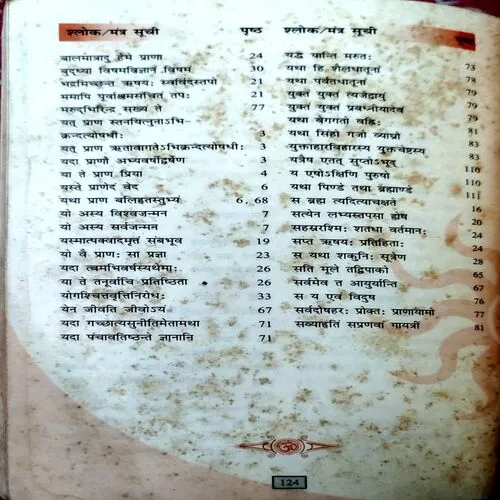 श्लोक/मंत्र सूची पृष्ठ
बालमात्रादु हेमे प्राणा 24
बुद्ध्या विषमविज्ञानं विषम 30
भद्रमिच्छन्त ऋषयः स्वर्विदस्तपो 21
ममापि पूर्वाश्रमसंचित तपः 21
मरुद्भिरिन्द्र सख्यं ते 77
यत् प्राण स्तनयित्नुनाऽभि-
क्रन्दत्योषधीः 3
यत् प्राण ऋतावागतेऽभिक्रन्दत्योषधीः 3
यदा प्राणौ अभ्यवर्षीद्वर्षेण 3
या ते प्राण प्रिया 4
यस्ते प्राणेदं वेद 6
यथा प्राण बलिहृतस्तुभ्यं 6, 68
यो अस्य विश्वजन्मन 7
यो अस्य सर्वजन्मन 7
यस्मात्पक्वादमृतं संबभूव 19
यो वै प्राणः सा प्रज्ञा 23
यदा त्वमभिवर्षस्यथेमाः 26
या ते तनूर्वाचि प्रतिष्ठिता 26
योगश्चित्तवृत्तिनिरोधः 33
येन जीवति जीवोऽयं 67
यदा गच्छात्यसुनीतिमेतामथा 71
यदा पंचावतिष्ठन्ते ज्ञानानि 71
श्लोक/मंत्र सूची पृष्ठ
यद्ध यान्ति मरुतः 73
यथा हि शैलधातूनां 78
यथा पर्वतधातूनां 79
युक्तं युक्तं त्यजेद्वायुं 79
युक्तं युक्तं प्रबध्नीयादेवं 81
यथा वेगगतो वह्निः 79
यथा सिंहो गजो व्याघ्रो 83
युक्ताहारविहारस्य युक्तचेष्टस्य 110
यत्रैष एतत् सुप्तोऽभूद् 110
य एषोऽक्षिणि पुरुषो 111
यथा पिण्डे तथा ब्रह्माण्डे
स ब्रह्म त्यदित्याचक्षते 16
सत्येन लभ्यस्तपसा ह्येष 20
सहस्ररश्मिः शतधा वर्तमानः 24
सप्त ऋषयः प्रतिहिताः 24
स यथा शकुनिः सूत्रेण 28
सति मूले तद्विपाको 65
सर्वमेव त आयुर्यान्ति 67
स य एवं विदुष 76
सर्वदोषहरः प्रोक्तः प्राणायामो 77
सव्याहृतिं सप्रणवां गायत्रीं 81
ॐ
124